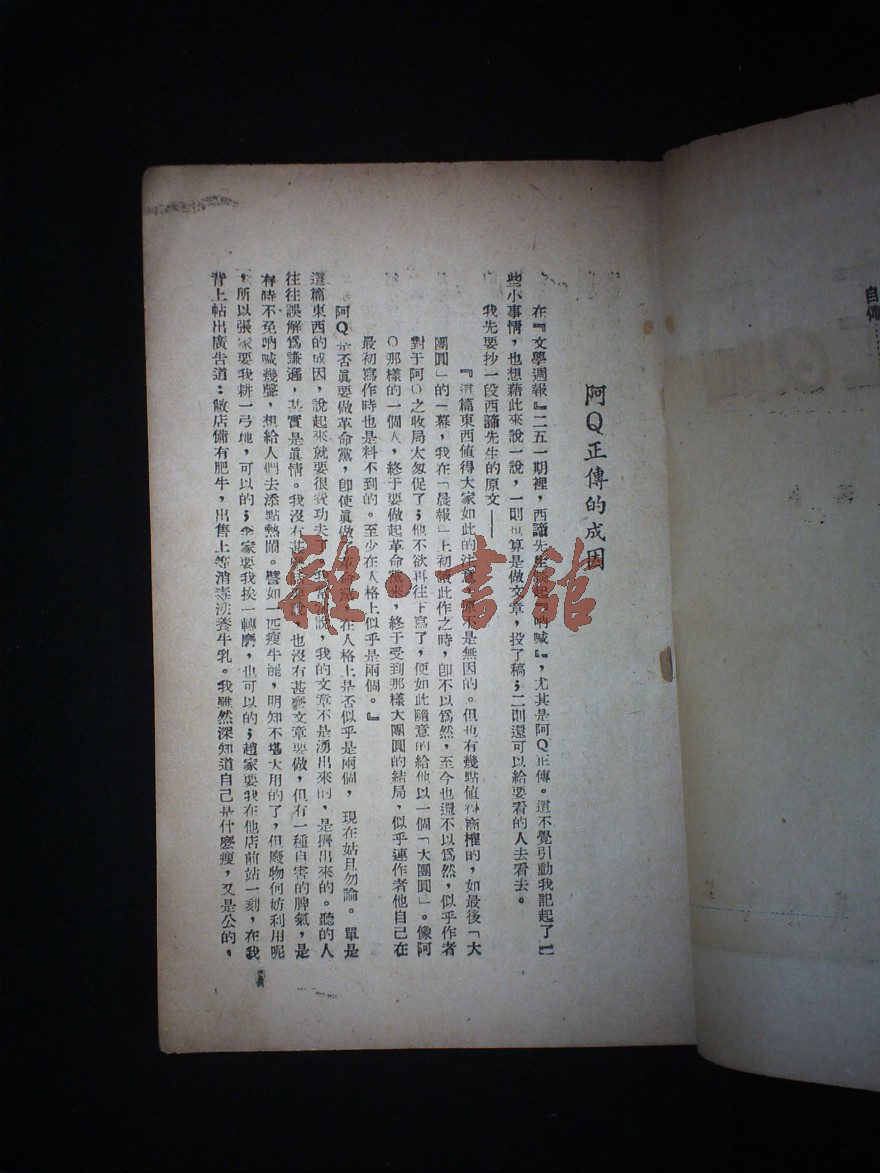 阿Q正傳的成因
在『文學週報』二五一期裡，西諦先生談起『吶喊』，尤其是阿Q正傳。這不覺引動我記起了一
些小事情，也想藉此來說一說，一則也算是做文章，投了稿；二則還可以給要看的人去看去。
我先要抄一段西諦先生的原文——
『這篇東西值得大家如此的注意，原不是無因的。但也有幾點值得商榷的，如最後「大
團圓」的一幕，我在「晨報」上初讀此作之時，卽不以爲然，至今也還不以爲然，似乎作者
對于阿Q之收局太匆促了；他不欲再往下寫了，便如此隨意的給他以一個「大團圓」。像阿
Q那樣的一個人，終于要做起革命黨來，終于受到那樣大團圓的結局，似乎連作者他自己在
最初寫作時也是料不到的。至少在人格上似乎是兩個。』
阿Q是否眞要做革命黨，卽使眞做了革命黨，在人格上是否似乎是兩個，現在姑且勿論。單是
這篇東西的成因，說起來就要很費功夫了。我常常說，我的文章不是湧出來的，是擠出來的。聽的人
往往誤解爲謙遜，其實是眞情。我沒有甚麼話要說，也沒有甚麼文章要做，但有一種自害的脾氣，是
有時不免吶喊幾聲，想給人們去添點熱鬧。譬如一匹疲牛罷，明知不堪大用的了，但廢物何妨利用呢
，所以張家要我耕一弓地，可以的；李家要我挨一轉磨，也可以的；趙家要我在他店前站一刻，在我
背上帖出廣告道：敝店備有肥牛，出售上等消毒滋養牛乳。我雖然深知道自己是什麼瘦，又是公的，
自傳
雜·書館